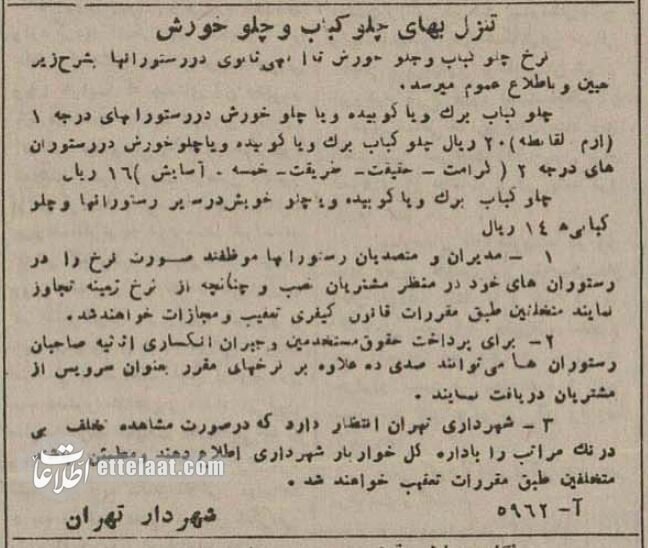 تنزل بهای چلو کباب و چلو خورش
نرخ چلو کباب و چلو خورش تا آگهی ثانوی در رستورانها بشرح زیر
تعیین و باطلاع عموم میرسد.
چلو کباب برك و یا کوبیده و یا چلو خورش در رستورانهای درجه ۱
(ارم لقانطه) ۲۰ ریال چلو کباب برك و یا کوبیده و یا چلو خورش در رستوران
های درجه ۲ (کرامت ـ حقیقت ـ طریقت ـ خمسه ـ آسایش) ۱۶ ریال
چلو کباب برك و یا کوبیده و یا چلو خورش در سایر رستورانها و چلو
کبابی‌ها ۱۴ ریال
۱ ـ مدیران و متصدیان رستورانها موظفند صورت نرخ را در
رستوران های خود در منظر مشتریان نصب و چنانچه از نرخ زمینه تجاوز
نمایند متخلفین طبق مقررات قانون کیفری تعقیب و مجازات خواهند شد.
۲ـ برای پرداخت حقوق مستخدمین و جبران انکساری اثاثیه صاحبان
رستوران ها می‌توانند صدی ده علاوه بر نرخهای مقرر بعنوان سرویس از
مشتریان دریافت نمایند.
۳ ـ شهرداری تهران انتظار دارد که در صورت مشاهده تخلف بی
درنك مراتب را باداره کل خواربار شهرداری اطلاع دهند و مطمئن
متخلفین طبق مقررات تعقیب خواهند شد.
آ- ۵۹۶۲
شهردار تهران
اطلاعات ettelaat.com